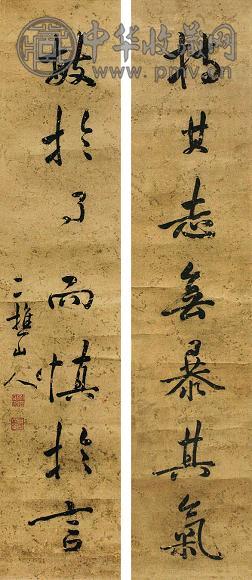 中华收藏网
www.pmv.cn
持其志無暴其氣
敏於事而慎於言
二樵山人